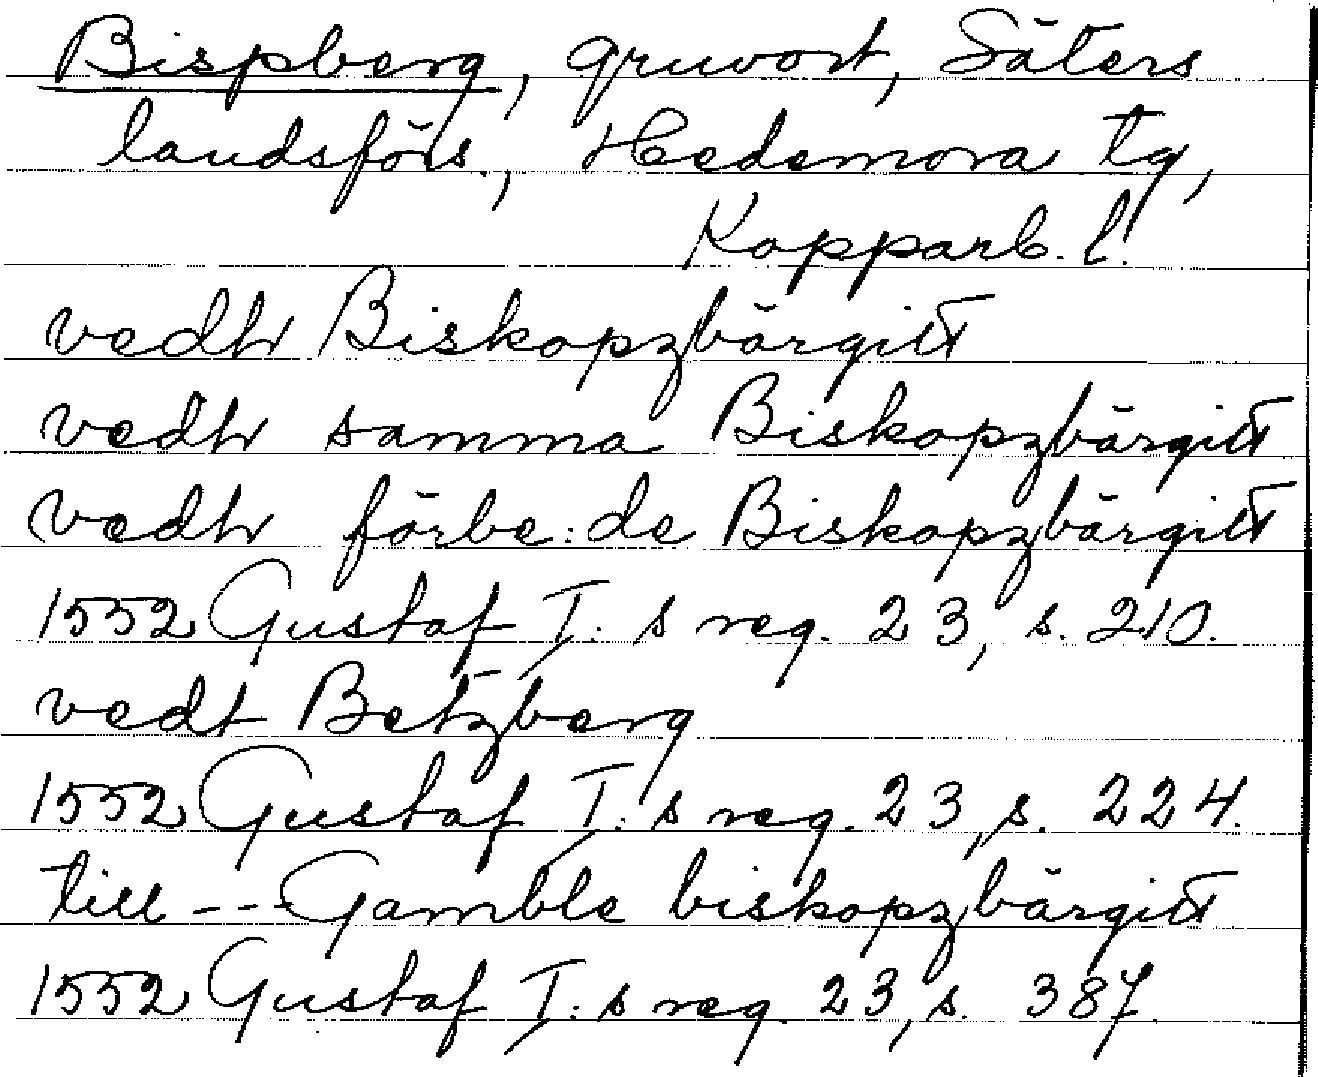 Bispberg, gruvort, Säters
landsförs., Hedemora tg,
Kopparb. l.
vedh Biskopzbärgitt
vedh samma Biskopzbärgitt
vedh förbe:de Biskopzbärgitt
1552 Gustaf I:s reg. 23, s. 210.
vedt Betzberg
1552 Gustaf I:s reg. 23, s. 224.
till --- Gamble biskopzbärgitt
1552 Gustaf I:s reg. 23, s. 387.